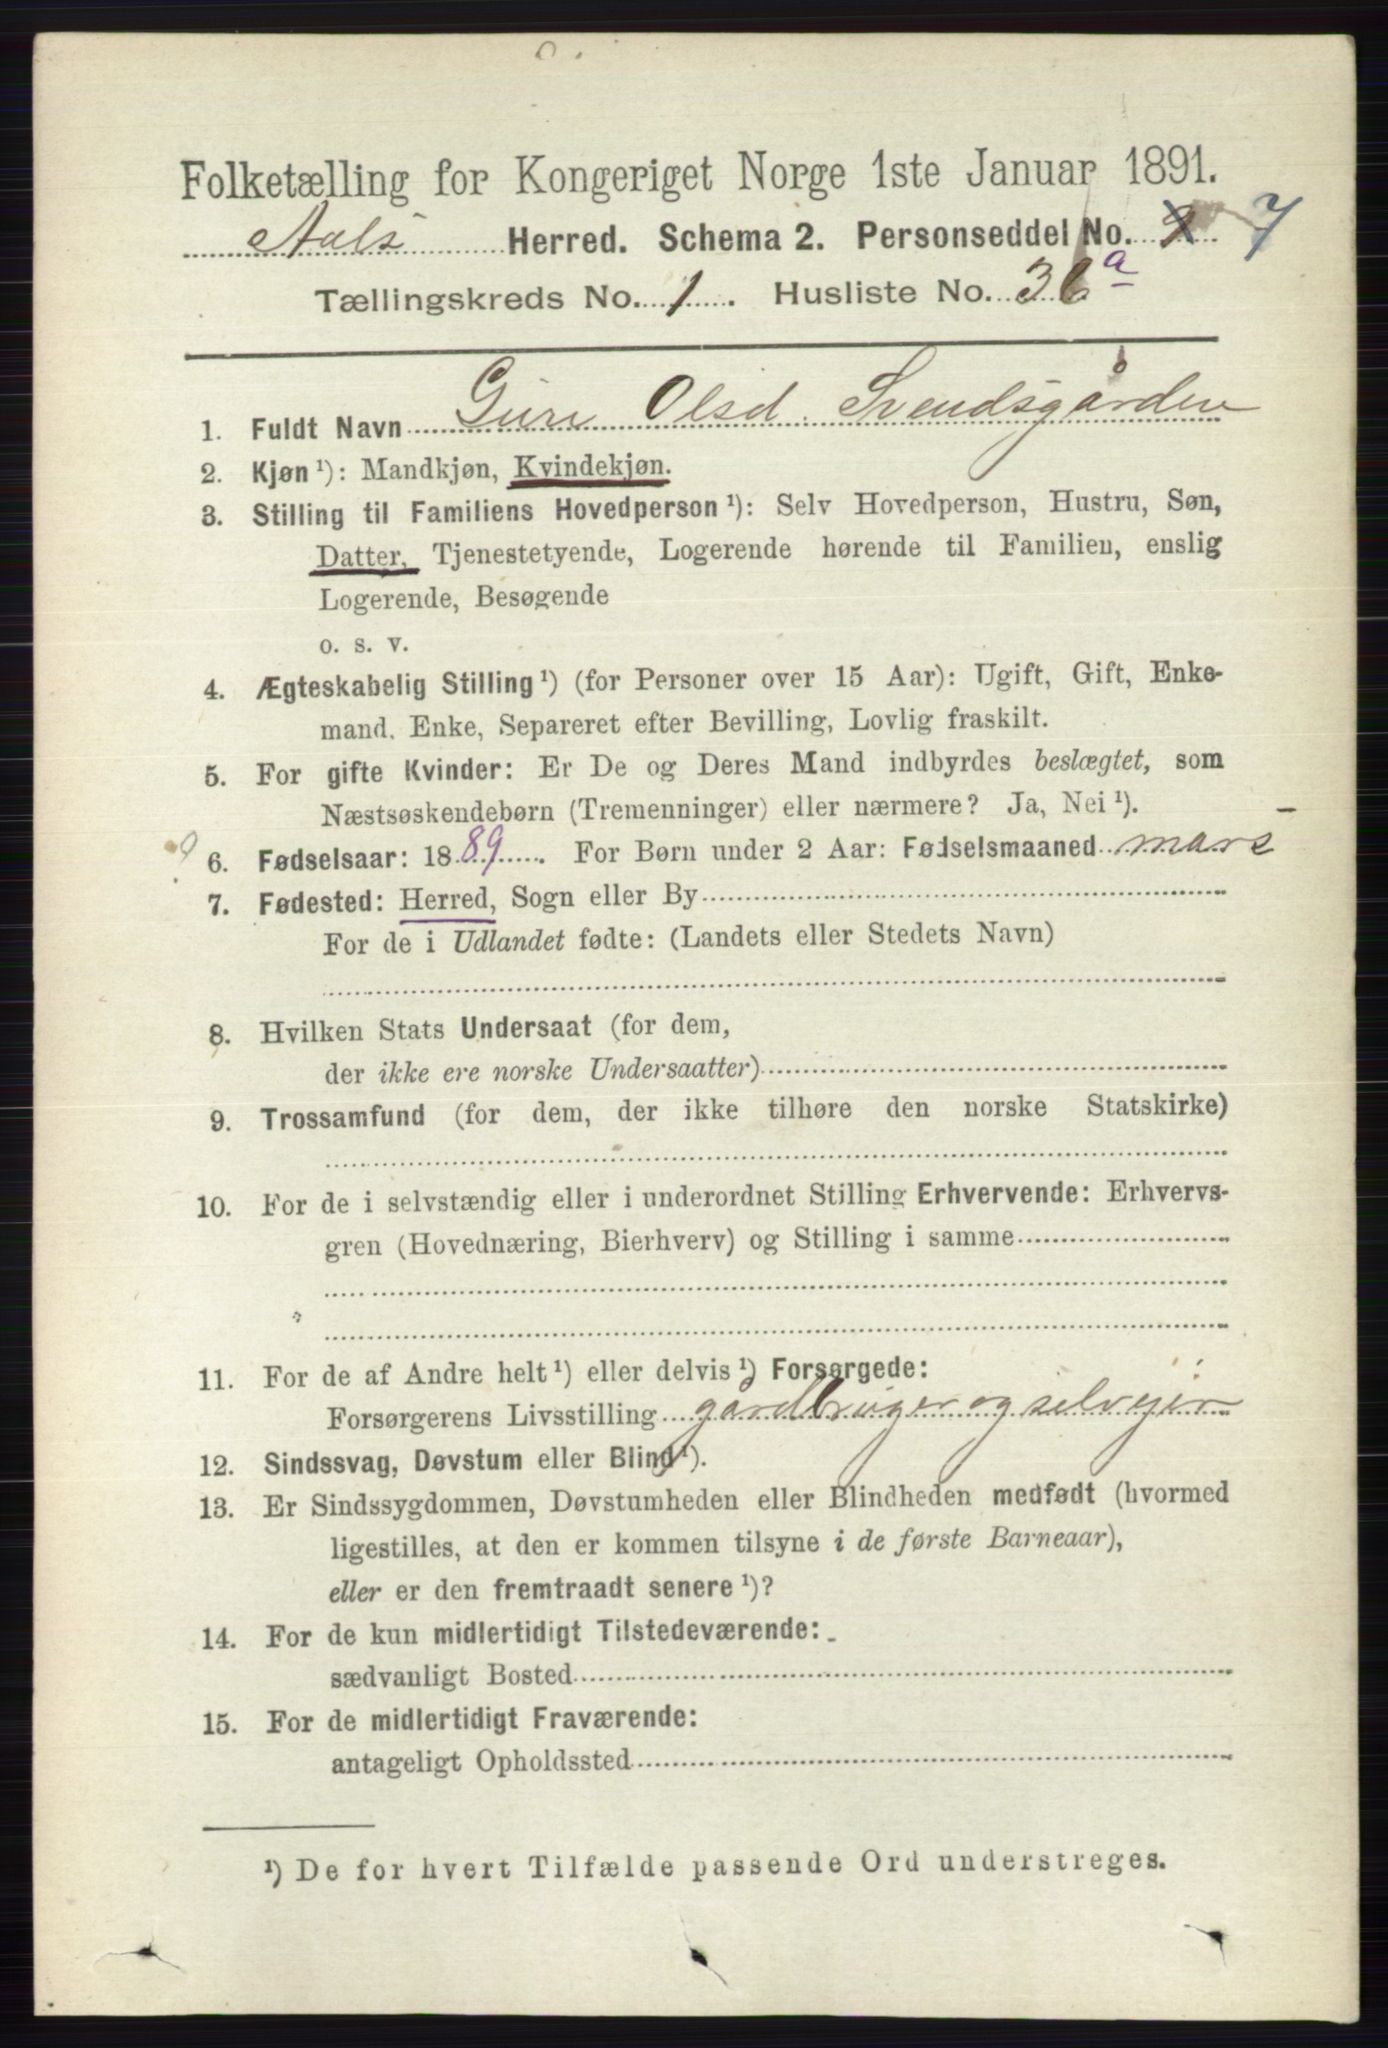 Folketælling for Kongeriget Norge 1ste Januar 1891.
Aals Herred. Schema 2. Personseddel No. 7
Tællingskreds No. 1. Husliste No. 36a
1. Fuldt Navn Guri Olsd. Svendsgården
2. Kjøn ¹): Mandkjøn, Kvindekjøn.
3. Stilling til Familiens Hovedperson ¹): Selv Hovedperson, Hustru, Søn,
Datter, Tjenestetyende, Logerende hørende til Familien, enslig
Logerende, Besøgende
o. s. v.
4. Ægteskabelig Stilling ¹) (for Personer over 15 Aar): Ugift, Gift, Enke-
mand, Enke, Separeret efter Bevilling, Lovlig fraskilt.
5. For gifte Kvinder: Er De og Deres Mand indbyrdes beslægtet, som
Næstsøskendebørn (Tremenninger) eller nærmere? Ja, Nei ¹).
6. Fødselsaar: 1889. For Børn under 2 Aar: Fødselsmaaned mars
7. Fødested: Herred, Sogn eller By
For de i Udlandet fødte: (Landets eller Stedets Navn)
8. Hvilken Stats Undersaat (for dem,
der ikke ere norske Undersaatter)
9. Trossamfund (for dem, der ikke tilhøre den norske Statskirke)
10. For de i selvstændig eller i underordnet Stilling Erhvervende: Erhvervs-
gren (Hovednæring, Bierhverv) og Stilling i samme
11. For de af Andre helt ¹) eller delvis ¹) Forsørgede:
Forsørgerens Livsstilling gårdbruger og selveier
12. Sindssvag, Døvstum eller Blind ¹).
13. Er Sindssygdommen, Døvstumheden eller Blindheden medfødt (hvormed
ligestilles, at den er kommen tilsyne i de første Barneaar),
eller er den fremtraadt senere ¹)?
14. For de kun midlertidigt Tilstedeværende:
sædvanligt Bosted
15. For de midlertidigt Fraværende:
antageligt Opholdssted
¹) De for hvert Tilfælde passende Ord understreges.